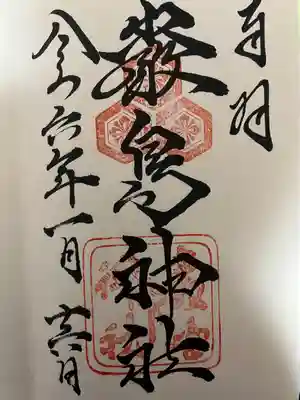 奉拝
嚴島神社
令和六年一月十六日